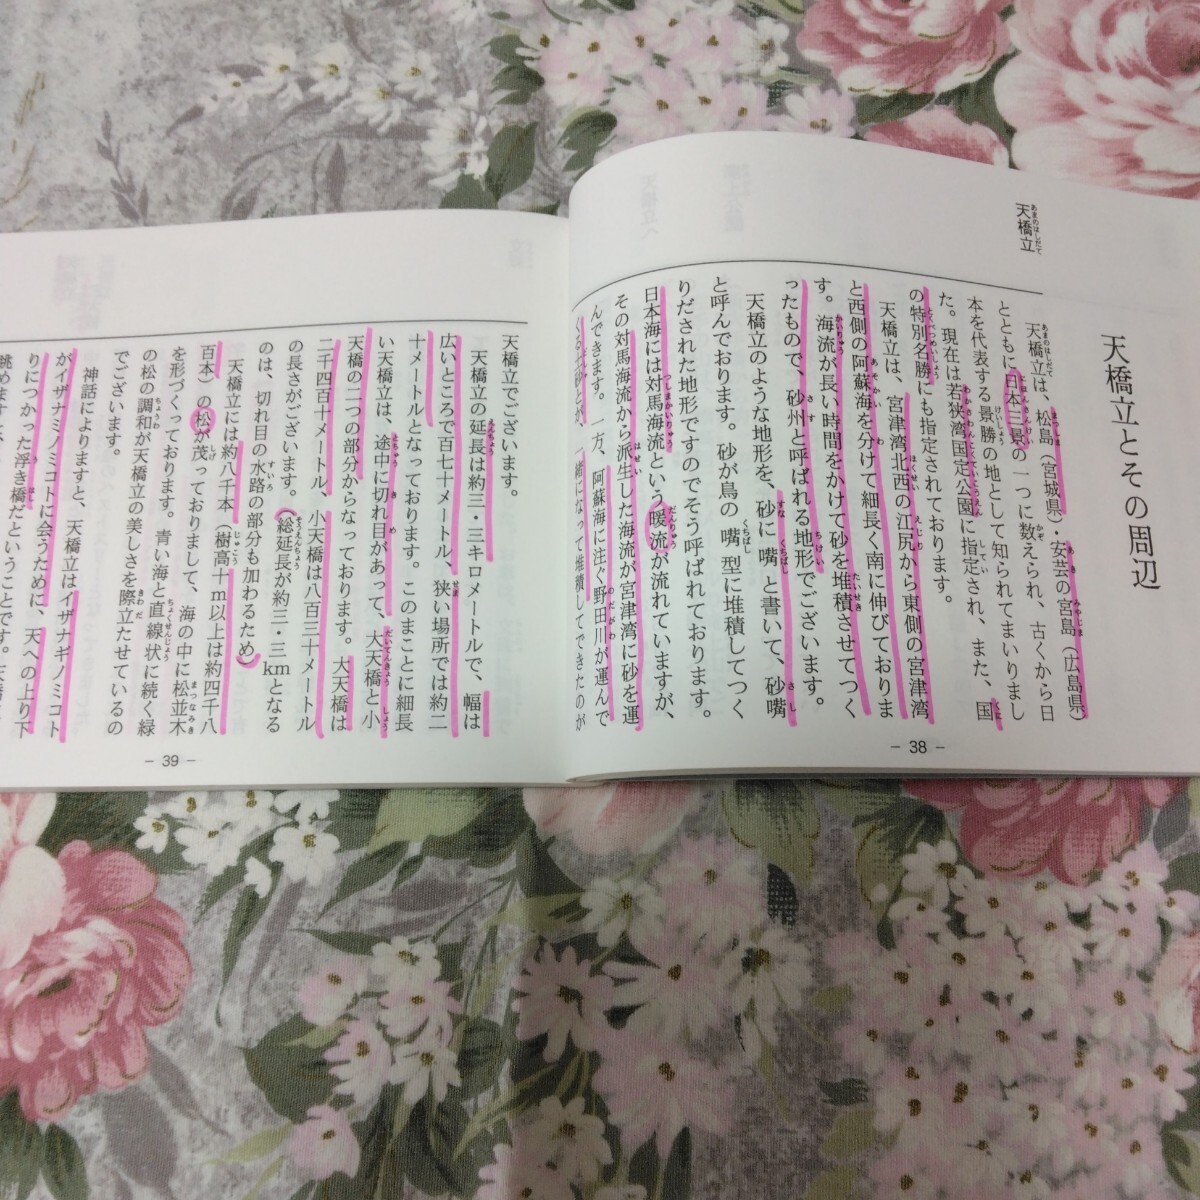 天橋立
天橋立とその周辺
天橋立は、松島（宮城県）・安芸の宮島（広島県）
とともに日本三景の一つに数えられ、古くから日
本を代表する景勝の地として知られてまいりまし
た。現在は若狭湾国定公園に指定され、また、国
の特別名勝にも指定されております。
天橋立は、宮津湾北西の江尻から東側の宮津湾
と西側の阿蘇海を分けて細長く南に伸びておりま
す。海流が長い時間をかけて砂を堆積させてつく
ったもので、砂州と呼ばれる地形でございます。
天橋立のような地形を、砂に嘴と書いて、砂嘴
と呼んでおります。砂が鳥の嘴型に堆積してつく
りだされた地形ですのでそう呼ばれております。
日本海には対馬海流という暖流が流れていますが、
その対馬海流から派生した海流が宮津湾に砂を運
んできます。一方、阿蘇海に注ぐ野田川が運んで
くる土砂とが、一緒になって堆積してできたのが
－38－
天橋立でございます。
天橋立の延長は約三・三キロメートルで、幅は
広いところで百七十メートル、狭い場所では約二
十メートルとなっております。このまことに細長
い天橋立は、途中に切れ目があって、大天橋と小
天橋の二つの部分からなっております。大天橋は
二千四百十メートル、小天橋は八百三十メートル
の長さがございます。（総延長が約三・三kmとなる
のは、切れ目の水路の部分も加わるため）
天橋立には約八千本（樹高十m以上は約四千八
百本）の松が茂っておりまして、海の中に松並木
を形づくっております。青い海と直線状に続く緑
の松の調和が天橋立の美しさを際立たせているの
でございます。
神話によりますと、天橋立はイザナギノミコト
がイザナミノミコトに会うために、天への上り下
りにつかった浮き橋だということです。
眺めます
－39－